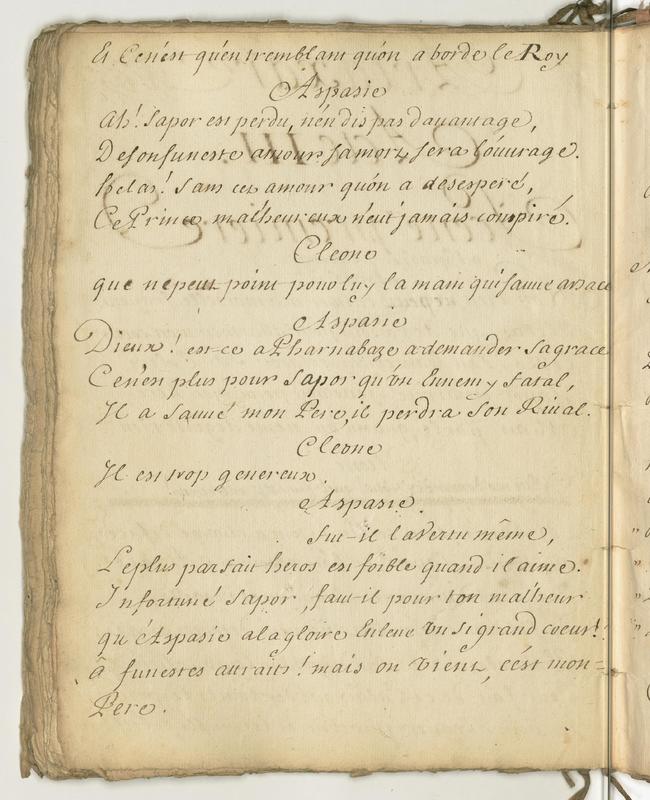 Et Cen'est qu'en tremblant qu'on aborde le Roy
Aspasie
Ah! Sapor est perdu, n'en dis pas dauantage,
De son funeste amour sa mort sera l'ouurage.
helas! sans cet amour qu'on a desesperé,
Ce Prince malheureux n'eut jamais conspiré.
Cleone
que ne peut point pour luy la main qui sauue arsace
Aspasie
Dieux! est-ce a Pharnabaze a demander sa grace
C'en'en plus pour Sapor qu'vn Ennemy fatal,
Il a sauué mon Pere, il perdra son Riual.
Cleone
Il est trop genereux.
Aspasie.
fut-il la Vertu même,
Le plus parfait heros est foible quand il aime.
Infortuné Sapor, faut-il pour ton malheur
qu'Aspasie a la gloire Enleue vn si grand coeur!
ô funestes attraits! mais on vient, c'est mon=
Pere.